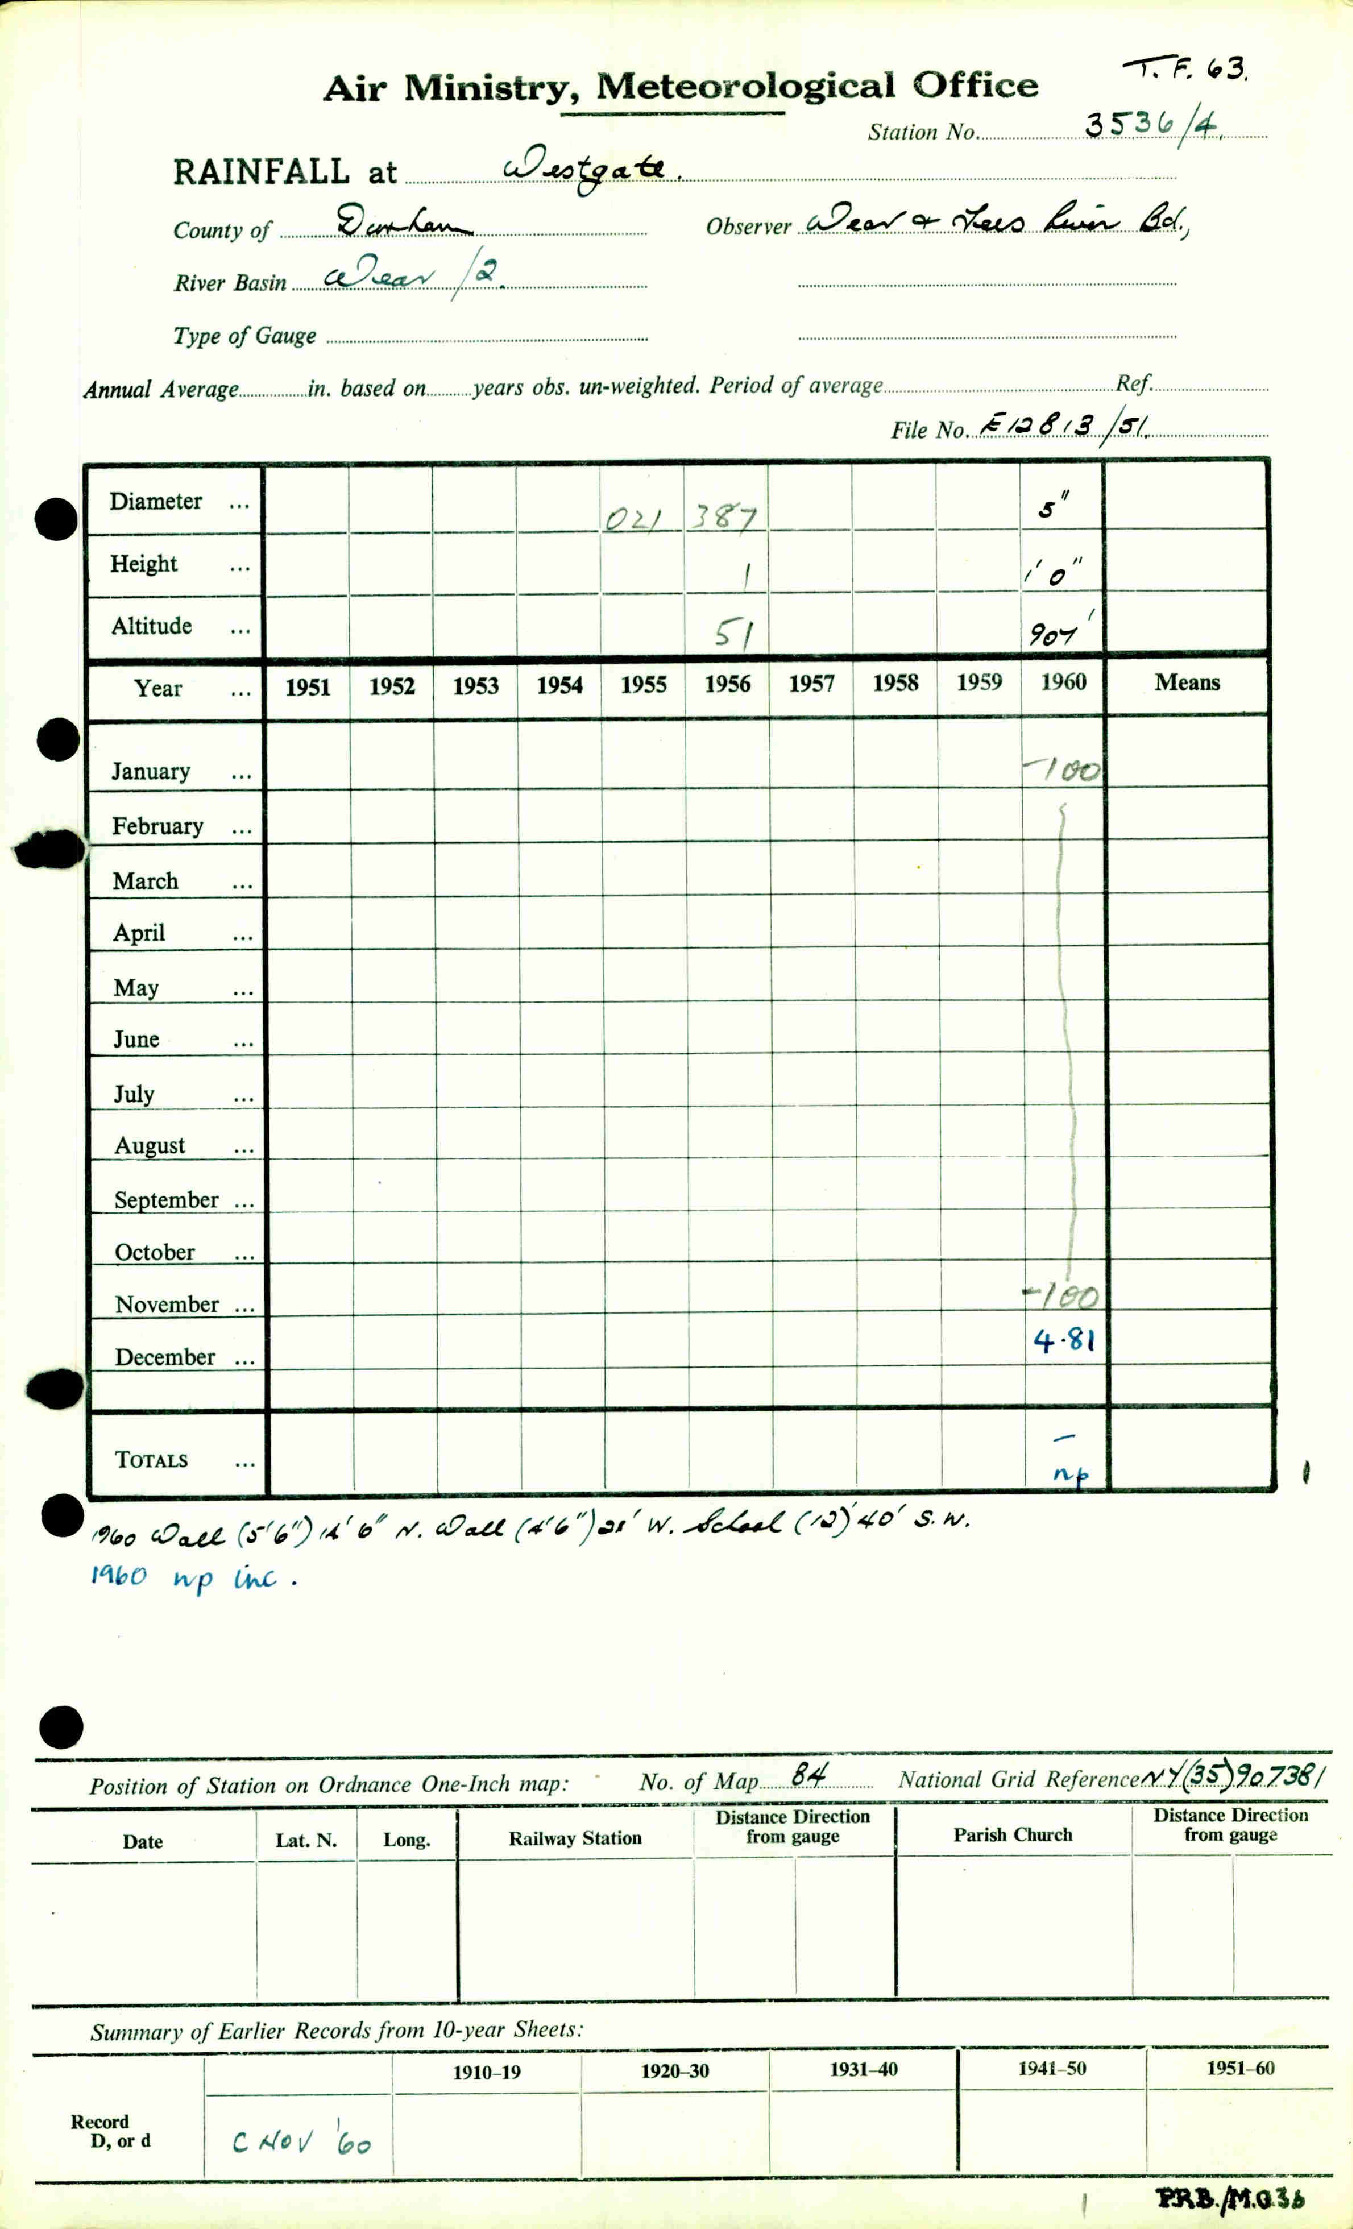 T. F. 63.
Air Ministry, Meteorological Office
Station No. 3536/4.
RAINFALL at Westgate.
County of Durham Observer Wear & Tees River Bd.,
River Basin Wear /2.
Type of Gauge
Annual Average in. based on years obs. un-weighted. Period of average Ref.
File No. E12813/51.
Diameter ... 021 387 5"
Height ... 1 1' 0"
Altitude ... 51 907'
Year ... 1951 1952 1953 1954 1955 1956 1957 1958 1959 1960 Means
January ... -100
February ...
March ...
April ...
May ...
June ...
July ...
August ...
September ...
October ...
November ... -100
December ... 4.81
TOTALS ... –
np
1960 Wall (5'6") 6" N. Wall (4'6") W. School (12)' 40' S.W.
1960 np inc.
Position of Station on Ordnance One-Inch map: No. of Map 84 National Grid Reference NY(35)907381
Date Lat. N. Long. Railway Station Distance Direction from gauge Parish Church Distance Direction from gauge
Summary of Earlier Records from 10-year Sheets:
1910–19 1920–30 1931–40 1941–50 1951–60
Record
D, or d C NOV '60
PRB./M.O.36